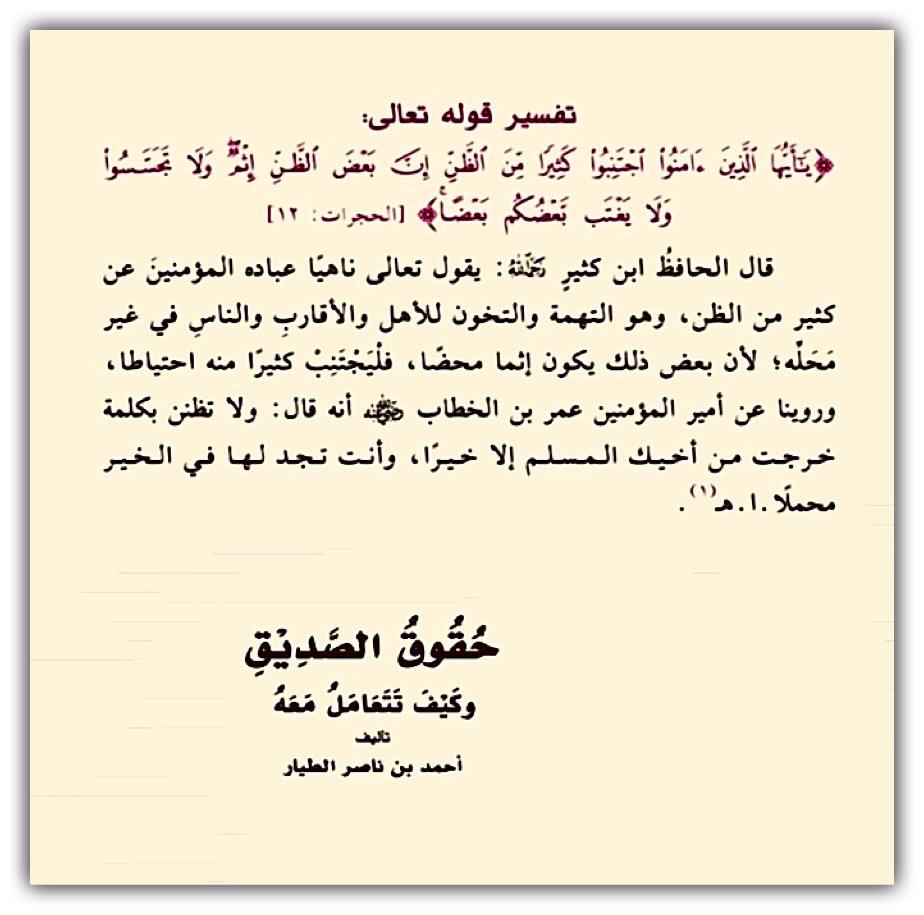 تفسير قوله تعالى:
﴿يَٰٓأَيُّهَا ٱلَّذِينَ ءَامَنُوا۟ ٱجْتَنِبُوا۟ كَثِيرًا مِّنَ ٱلظَّنِّ إِنَّ بَعْضَ ٱلظَّنِّ إِثْمٌۖ وَلَا تَجَسَّسُوا۟
وَلَا يَغْتَب بَّعْضُكُم بَعْضًاۚ﴾ [الحجرات: ١٢]
قال الحافظُ ابن كثيرٍ رَحِمَهُ ٱللَّهُ: يقول تعالى ناهيًا عباده المؤمنينَ عن
كثير من الظن، وهو التهمة والتخون للأهل والأقاربِ والناسِ في غير
مَحَلِّه؛ لأن بعض ذلك يكون إثما محضًا، فلْيَجْتَنِبْ كثيرًا منه احتياطا،
وروينا عن أمير المؤمنين عمر بن الخطاب رضي الله عنه أنه قال: ولا تظنن بكلمة
خرجت من أخيك المسلم إلا خيرًا، وأنت تجد لها في الخير
محملًا.ا.هـ(١).
حُقُوقُ الصَّدِيْقِ
وكَيْفَ تَتَعَامَلُ مَعَهُ
تأليف
أحمد بن ناصر الطيار